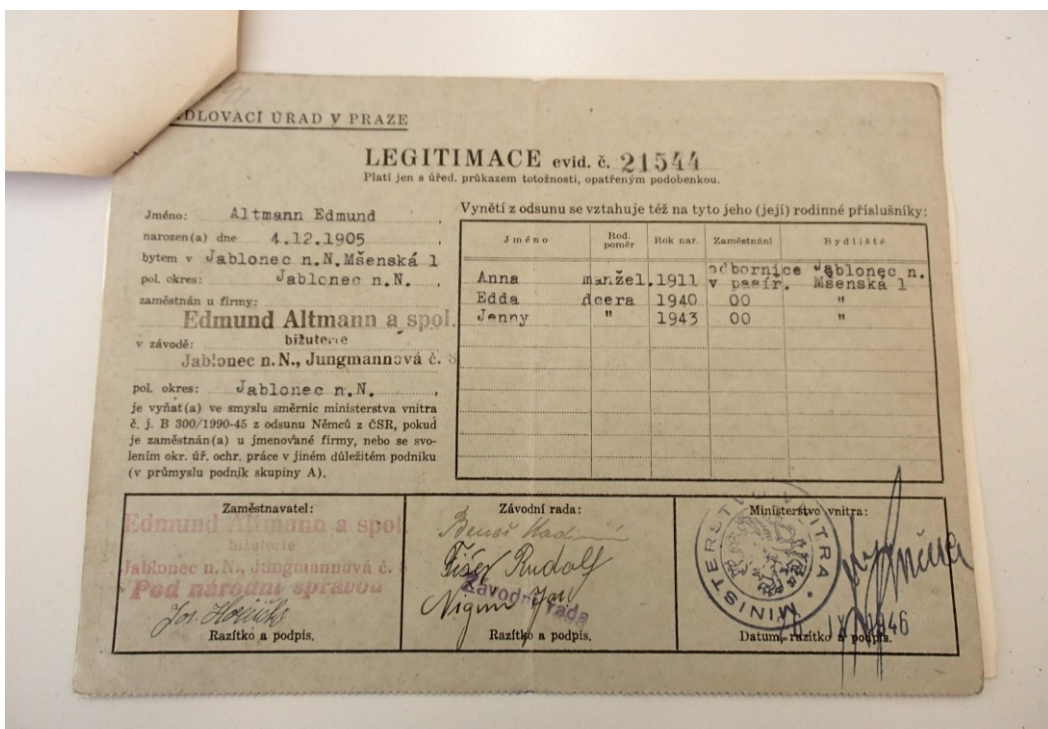 DLOVACÍ ÚŘAD V PRAZE
LEGITIMACE evid. č. 21544
Platí jen s úřed. průkazem totožnosti, opatřeným podobenkou.
Jméno: Altmann Edmund
narozen(a) dne 4.12.1905
bytem v Jablonec n.N.Mšenská 1
pol. okres: Jablonec n.N.
zaměstnán u firmy:
Edmund Altmann a spol.
v závodě: bižuterie
Jablonec n.N., Jungmannová č. 8
pol. okres: Jablonec n.N.
je vyňat(a) ve smyslu směrnic ministerstva vnitra
č. j. B 300/1990-45 z odsunu Němců z ČSR, pokud
je zaměstnán(a) u jmenované firmy, nebo se svo-
lením okr. úř. ochr. práce v jiném důležitém podniku
(v průmyslu podnik skupiny A).
Vynětí z odsunu se vztahuje též na tyto jeho (její) rodinné příslušníky:
Jméno Rod. poměr Rok nar. Zaměstnání Bydliště
Anna manžel. 1911 odbornice v pasír. Jablonec n. Mšenská 1
Edda dcera 1940 00 "
Jenny " 1943 00 "
Zaměstnavatel:
Edmund Altmann a spol.
bižuterie
Jablonec n.N., Jungmannová č.
Pod národní správou
Razítko a podpis.
Závodní rada:
Beneš
Fišer Rudolf
Jan
Závodní rada
Razítko a podpis.
Ministerstvo vnitra:
MINISTERSTVO VNITRA
1946
Datum, razítko a podpis.